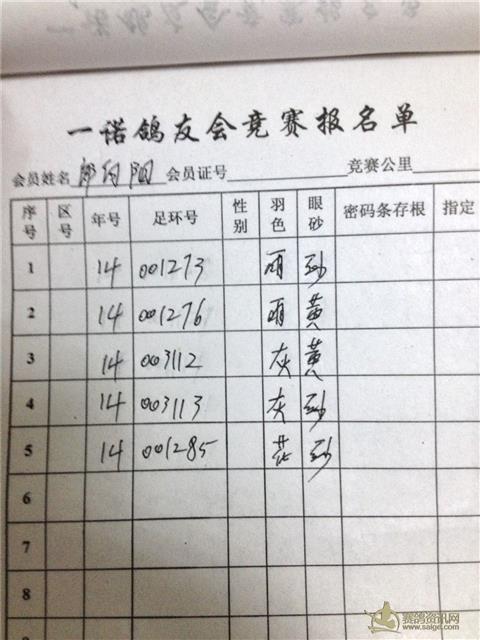 一诺鸽友会竞赛报名单
会员姓名 向阳 会员证号 竞赛公里
序号 区号 年号 足环号 性别 羽色 眼砂 密码条存根 指定
1 14 001273 雨 砂
2 14 001276 雨 黄
3 14 003112 灰 黄
4 14 003113 灰 砂
5 14 001285 花 砂
6
7
8
赛鸽资讯网
www.saige.com